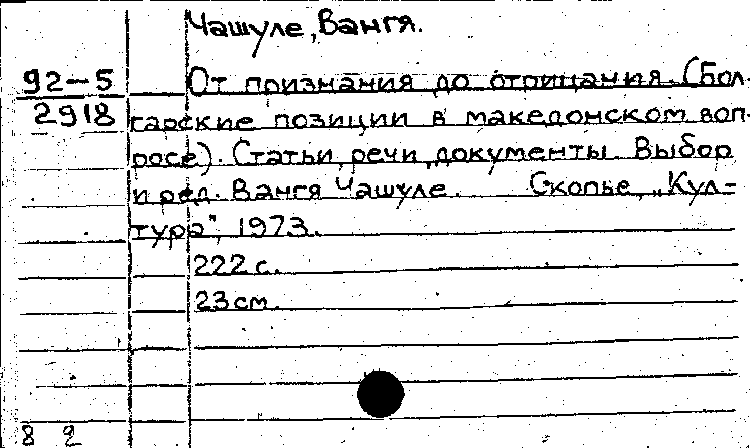 Чашуле, Вангя.
92-5
2918
От признания до отрицания. (Бол-
гарские позиции в македонском воп-
росе). Статьи, речи, документы. Выбор
и ред. Вангя Чашуле. Скопье, „Кул-
тура", 1973.
222 с.
23 см.
8 2